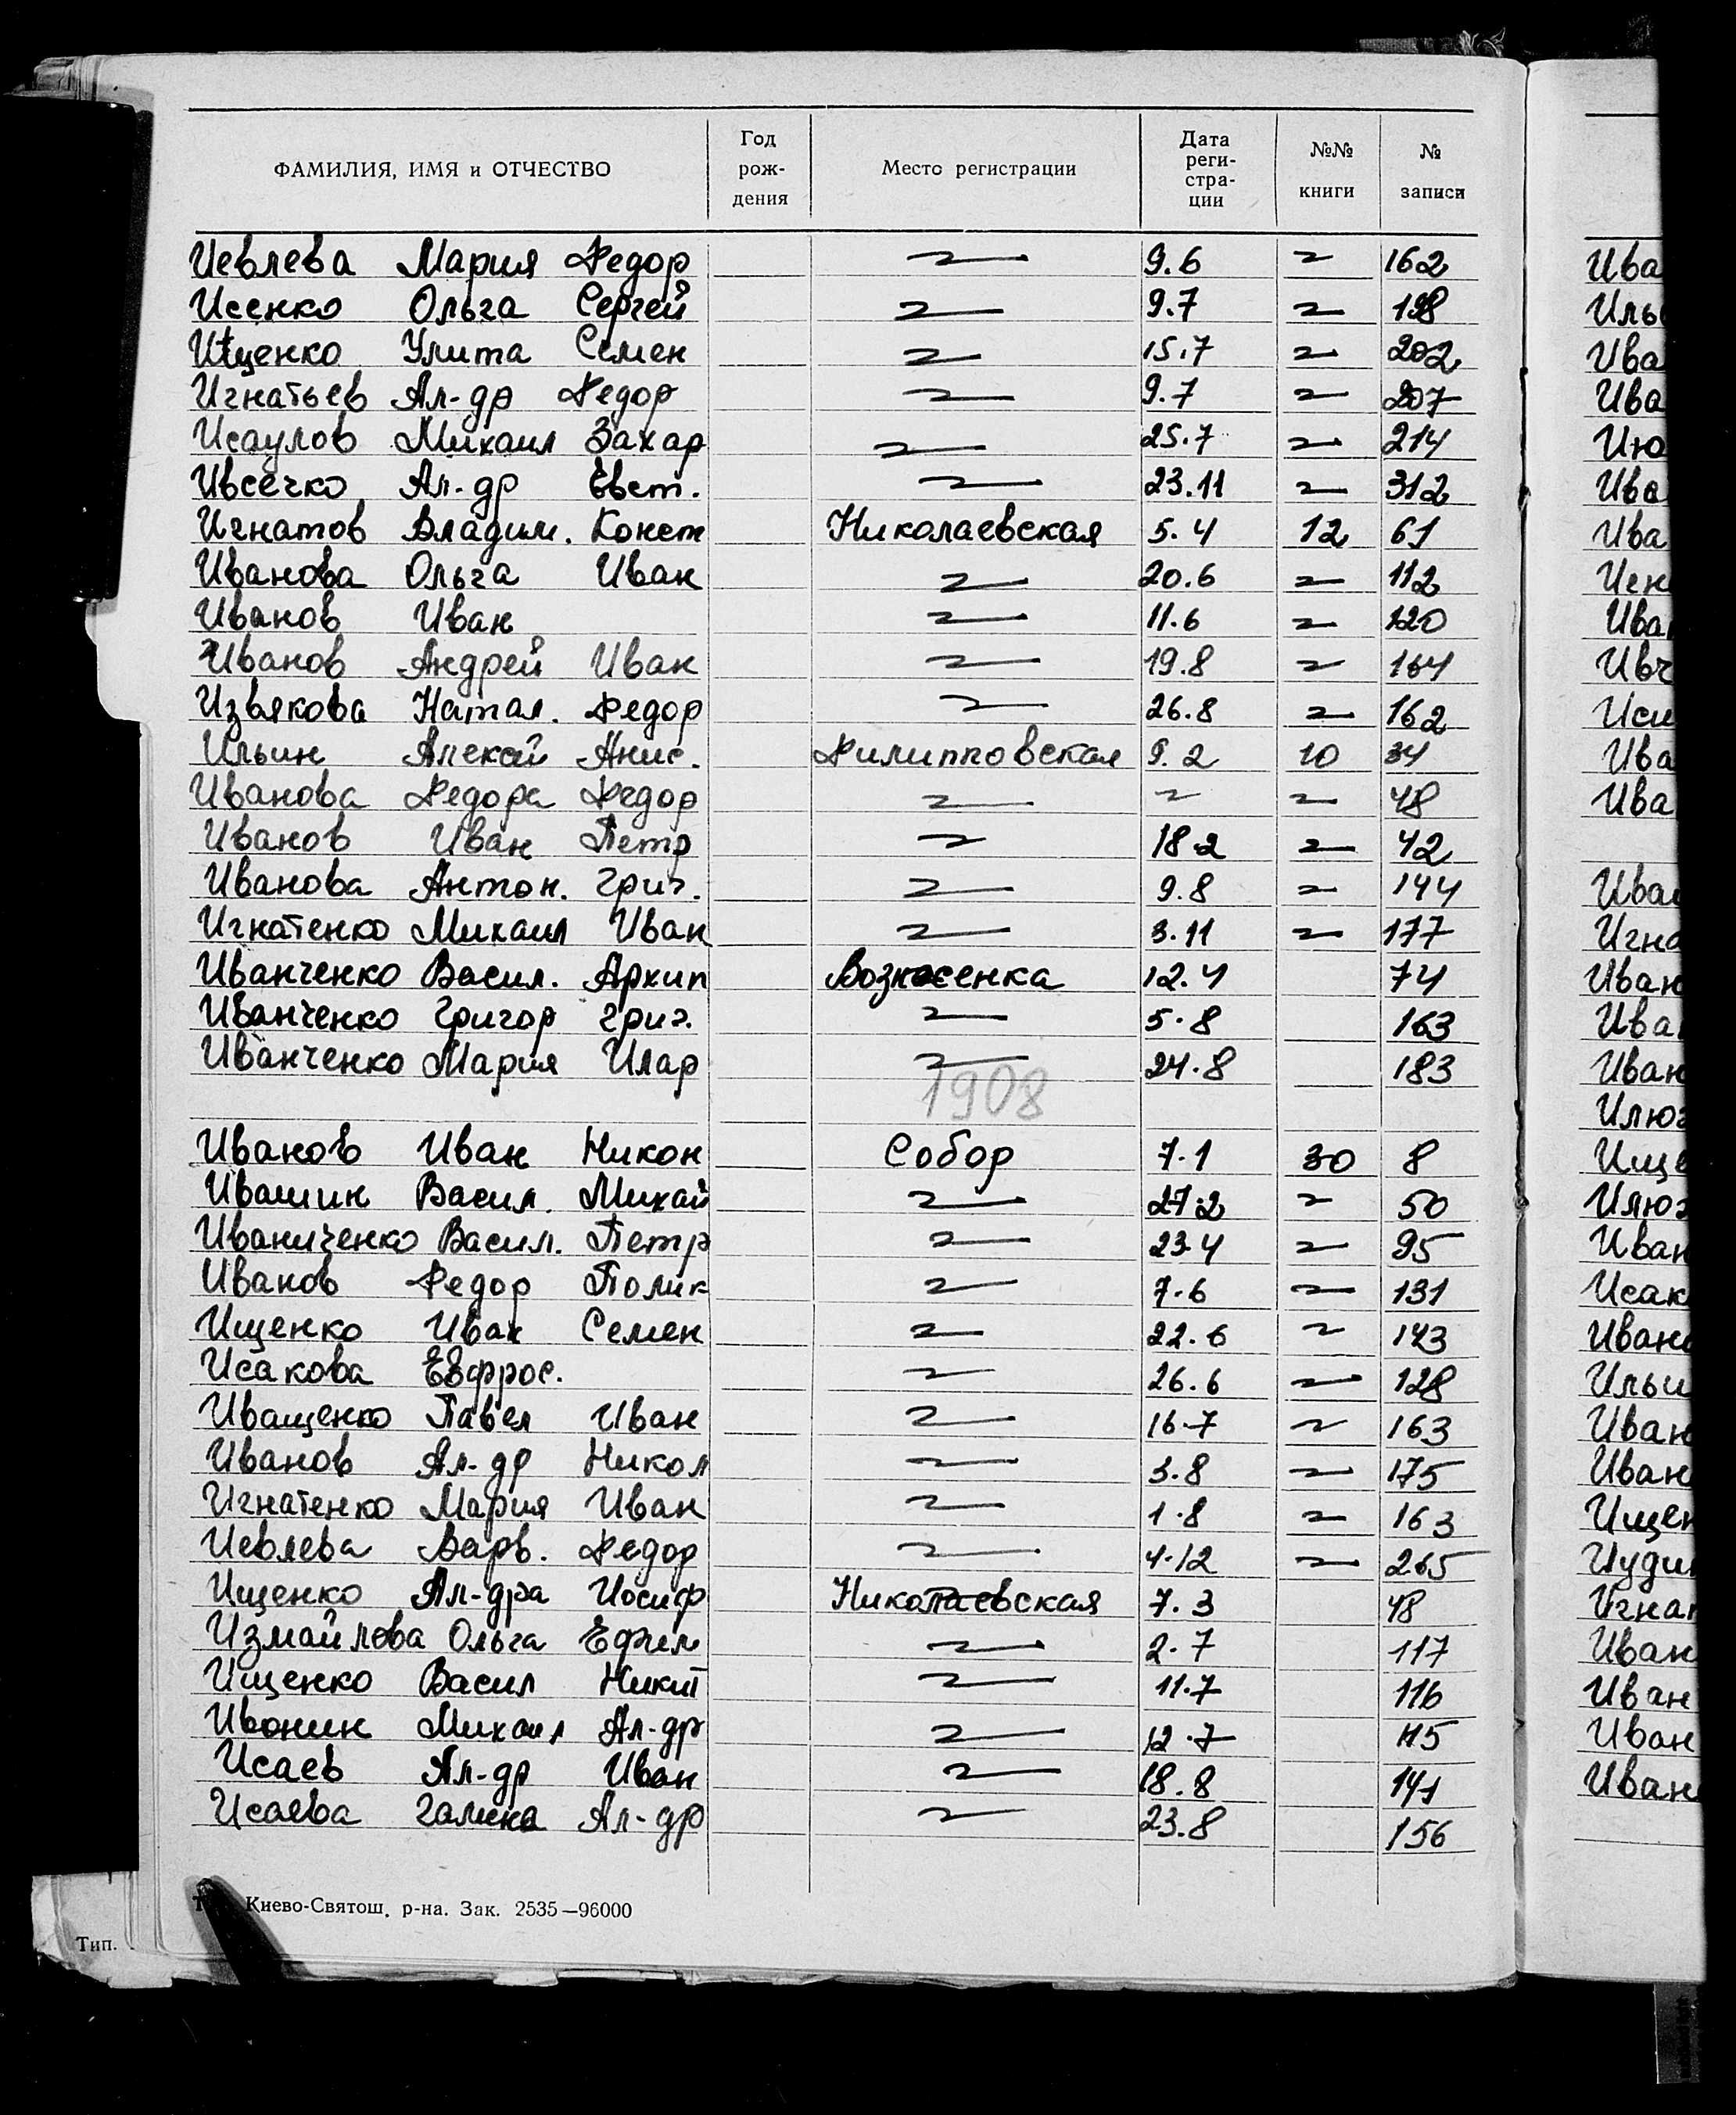 ФАМИЛИЯ, ИМЯ и ОТЧЕСТВО | Год рождения | Место регистрации | Дата регистрации | №№ книги | № записи
Иевлева Мария Федор 〃 9.6 〃 162
Исенко Ольга Сергей 〃 9.7 〃 198
Ищенко Улита Семен 〃 15.7 〃 202
Игнатьев Ал-др Федор 〃 9.7 〃 207
Исаулов Михаил Захар 〃 25.7 〃 214
Ивсечко Ал-др Евст. 〃 23.11 〃 312
Игнатов Владим. Конст Николаевская 5.4 12 61
Иванова Ольга Иван 〃 20.6 〃 112
Иванов Иван 〃 11.6 〃 120
Иванов Андрей Иван 〃 19.8 〃 164
Извякова Натал. Федор 〃 26.8 〃 162
Ильин Алексей Анис. Филипповская 9.2 10 34
Иванова Федора Федор 〃 〃 〃 48
Иванов Иван Петр 〃 18.2 〃 42
Иванова Антон. Григ. 〃 9.8 〃 144
Игнатенко Михаил Иван 〃 3.11 〃 177
Иванченко Васил. Архип Вознесенка 12.4 74
Иванченко Григор Григ. 〃 5.8 163
Иванченко Мария Илар 〃 24.8 183
1908
Иванов Иван Никон Собор 7.1 30 8
Ивашин Васил. Михай 〃 27.2 〃 50
Иваниченко Васил. Петр 〃 23.4 〃 95
Иванов Федор Полик 〃 7.6 〃 131
Ищенко Иван Семен 〃 22.6 〃 143
Исакова Евфрос. 〃 26.6 〃 128
Иващенко Павел Иван 〃 16.7 〃 163
Иванов Ал-др Никол 〃 3.8 〃 175
Игнатенко Мария Иван 〃 1.8 〃 163
Иевлева Варв. Федор 〃 4.12 〃 265
Ищенко Ал-дра Иосиф Николаевская 7.3 48
Измайлова Ольга Ефим 〃 2.7 117
Ищенко Васил Никит 〃 11.7 116
Ивонин Михаил Ал-др 〃 12.7 115
Исаев Ал-др Иван 〃 18.8 141
Исаева Галина Ал-др 〃 23.8 156
Киево-Святош. р-на. Зак. 2535—96000
Тип.
Ива
Иль
Ива
Ива
Ию
Ива
Ива
Игн
Ива
Ивч
Иси
Ива
Ива
Иван
Игна
Иван
Ива
Иван
Илюз
Ище
Илюз
Иван
Исак
Ивано
Ильи
Иван
Иван
Ищен
Иудин
Игна
Иван
Иван
Иван
Иван